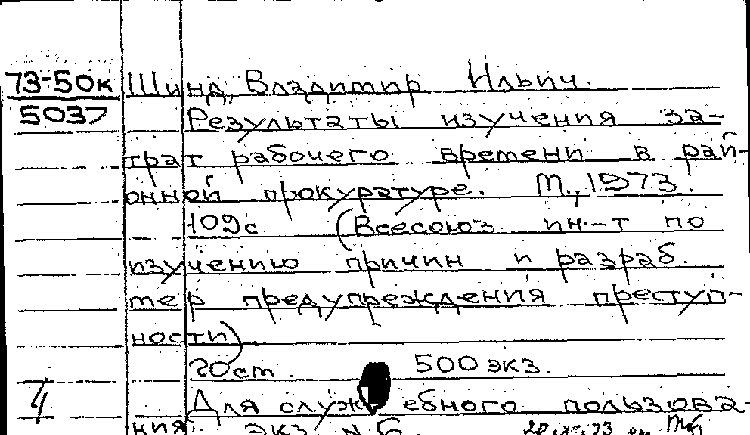 73-50к Шинд, Владимир Ильич.
5037 Результаты изучения за-
трат рабочего времени в рай-
онной прокуратуре. М., 1973.
109с (Всесоюз. ин-т по
изучению причин и разраб.
мер предупреждения преступ-
ности)
20см. 500 экз.
4 Для служебного пользова-
ния. экз. №